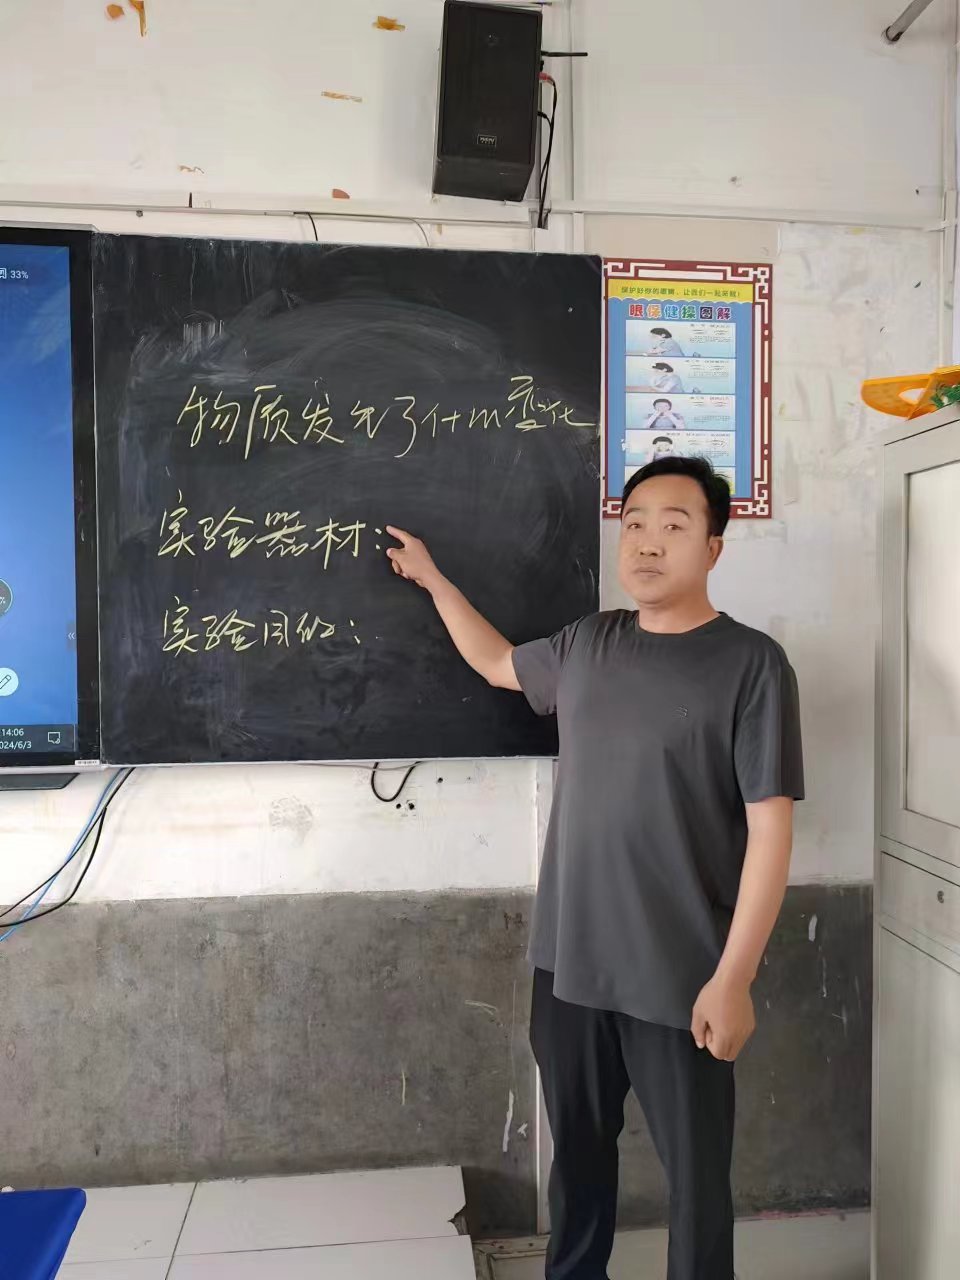 33%
物质发生了什么变化
实验器材:
实验目的:
14:06
2024/6/3
保护好你的眼睛，让我们一起来做！
眼保健操图解